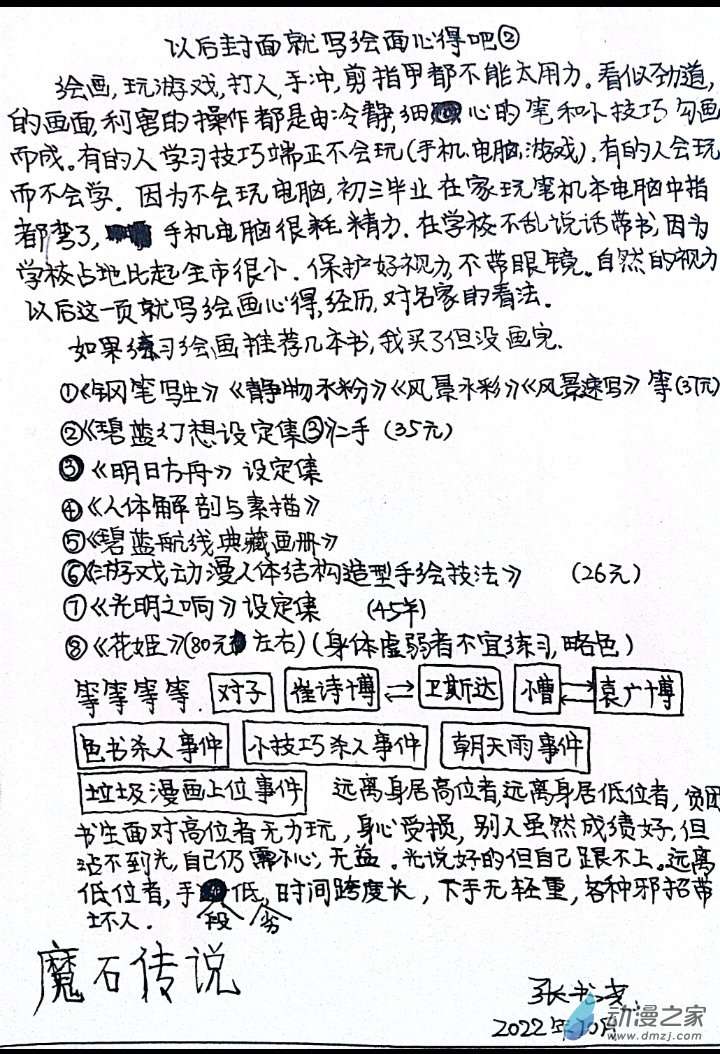 以后封面就写绘画心得吧②
绘画,玩游戏,打人,手冲,剪指甲都不能太用力。看似劲道,
的画面,利害的操作都是由冷静,细心的笔和小技巧勾画
而成。有的人学习技巧端正不会玩(手机.电脑.游戏),有的人会玩
而不会学.因为不会玩电脑,初三毕业在家玩笔机本电脑中指
都弯了,手机电脑很耗精力.在学校不乱说话带书,因为
学校占地比起全市很小.保护好视力,不带眼镜。自然的视力
以后这一页就写绘画心得,经历,对名家的看法。
如果练习绘画推荐几本书,我买了但没画完.
①《钢笔写生》《静物水粉》《风景水彩》《风景速写》等(3元)
②《碧蓝幻想设定集③》二手(35元)
③《明日方舟》设定集
④《人体解剖与素描》
⑤《碧蓝航线典藏画册》
⑥《游戏动漫人体结构造型手绘技法》(26元)
⑦《光明之响》设定集(45)
⑧《花姬》(80元左右)(身体虚弱者不宜练习,略色)
等等等等. 对子 崔诗博 卫斯达 小曹 袁广博
色书杀人事件 小技巧杀人事件 朝天雨事件
垃圾漫画上位事件 远离身居高位者,远离身居低位者,贫困
书生面对高位者无力玩,身心受损,别人虽然成绩好,但
沾不到光,自己仍需小心,无益.光说好的但自己跟不上。远离
低位者,手段低劣,时间跨度长,下手无轻重,各种邪招带
坏人.
魔石传说
张书
2022年10月
动漫之家
www.dmzj.com